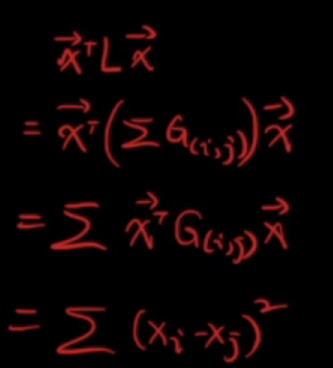 x⃗ᵀL x⃗
= x⃗ᵀ(Σ G₍ᵢ,ⱼ₎)x⃗
= Σ x⃗ᵀG₍ᵢ,ⱼ₎x⃗
= Σ (xᵢ-xⱼ)²